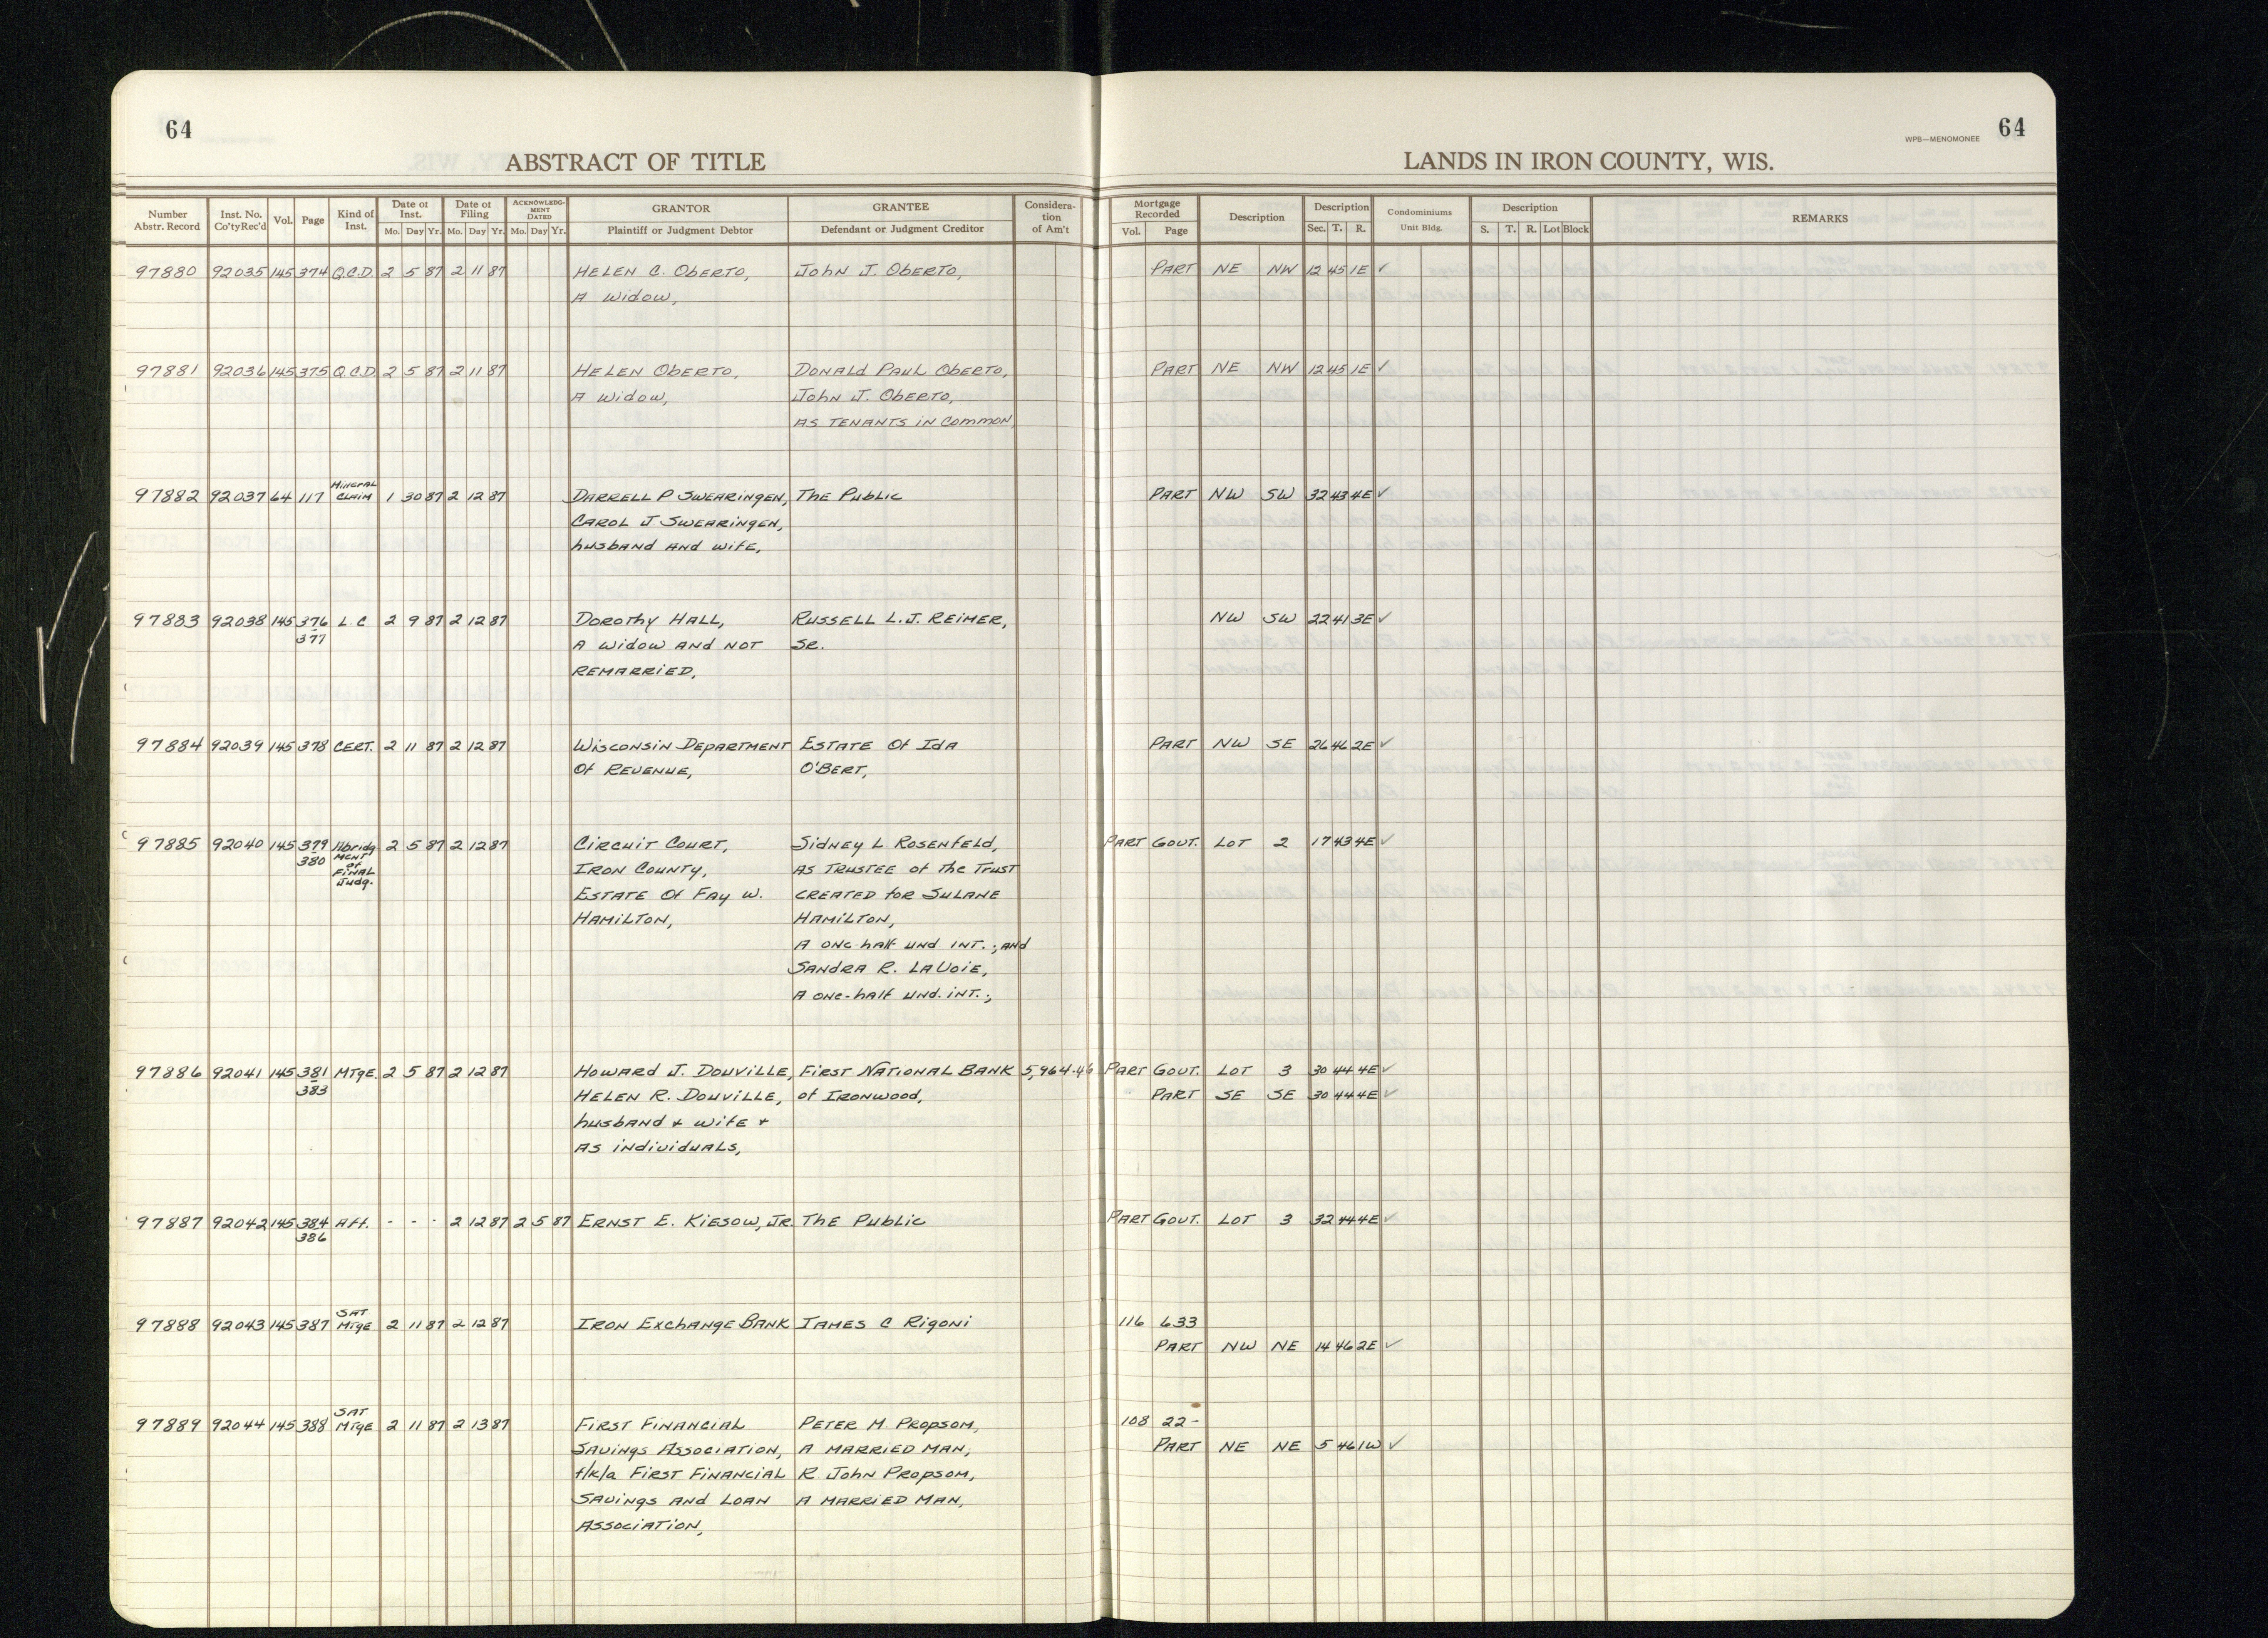 64
WPB—MENOMONEE 64
ABSTRACT OF TITLE LANDS IN IRON COUNTY, WIS.
Number Abstr. Record Inst. No. Co'ty Rec'd Vol. Page Kind of Inst. Date of Inst. Mo. Day Yr. Date of Filing Mo. Day Yr. ACKNOWLEDG- MENT DATED Mo. Day Yr. GRANTOR Plaintiff or Judgment Debtor GRANTEE Defendant or Judgment Creditor Considera- tion of Am't Mortgage Recorded Vol. Page Description Description Sec. T. R. Condominiums Unit Bldg. Description S. T. R. Lot Block REMARKS
97880 92035 145 374 Q.C.D. 2 5 87 2 11 87 HELEN C. OBERTO, JOHN J. OBERTO, PART NE NW 12 45 1E ✓
A Widow,
97881 92036 145 375 Q.C.D. 2 5 87 2 11 87 HELEN OBERTO, DONALD PAUL OBERTO, PART NE NW 12 45 1E ✓
A Widow, JOHN J. OBERTO,
AS TENANTS IN COMMON,
97882 92037 64 117 MINERAL CLAIM 1 30 87 2 12 87 DARRELL P SWEARINGEN, The Public PART NW SW 32 43 4E ✓
CAROL J SWEARINGEN,
husband AND wife,
97883 92038 145 376 L C 2 9 87 2 12 87 DOROTHY HALL, RUSSELL L.J. REIMER, NW SW 22 41 3E ✓
377 A Widow AND NOT SR.
REMARRIED,
97884 92039 145 378 CERT. 2 11 87 2 12 87 WISCONSIN DEPARTMENT ESTATE Of IDA PART NW SE 26 46 2E ✓
Of REVENUE, O'BERT,
97885 92040 145 379 Abridg 2 5 87 2 12 87 CIRCUIT COURT, SIDNEY L ROSENFELD, PART GOVT. LOT 2 17 43 4E ✓
380 MENT of FINAL Judg. IRON COUNTY, AS TRUSTEE of the TRUST
ESTATE Of FAY W. CREATED for SULANE
HAMILTON, HAMILTON,
A one-half und INT.; AND
SANDRA R. LAVOIE,
A one-half und. INT.;
97886 92041 145 381 MTgE. 2 5 87 2 12 87 HOWARD J. DOUVILLE, FIRST NATIONAL BANK 5,964.46 PART GOVT. LOT 3 30 44 4E ✓
383 HELEN R. DOUVILLE, of IRONWOOD, PART SE SE 30 44 4E ✓
husband & wife &
AS individuals,
97887 92042 145 384 Aff. - - - 2 12 87 2 5 87 ERNST E. KIESOW, JR. The Public PART GOVT. LOT 3 32 44 4E ✓
386
97888 92043 145 387 SAT MTgE 2 11 87 2 12 87 IRON EXCHANGE BANK JAMES C RIGONI 116 633
PART NW NE 14 46 2E ✓
97889 92044 145 388 SAT MTgE 2 11 87 2 13 87 FIRST FINANCIAL PETER M. PROPSOM, 108 22-
SAVINGS ASSOCIATION, A MARRIED MAN; PART NE NE 5 46 1W ✓
f/k/a FIRST FINANCIAL R JOHN PROPSOM,
SAVINGS AND LOAN A MARRIED MAN,
ASSOCIATION,